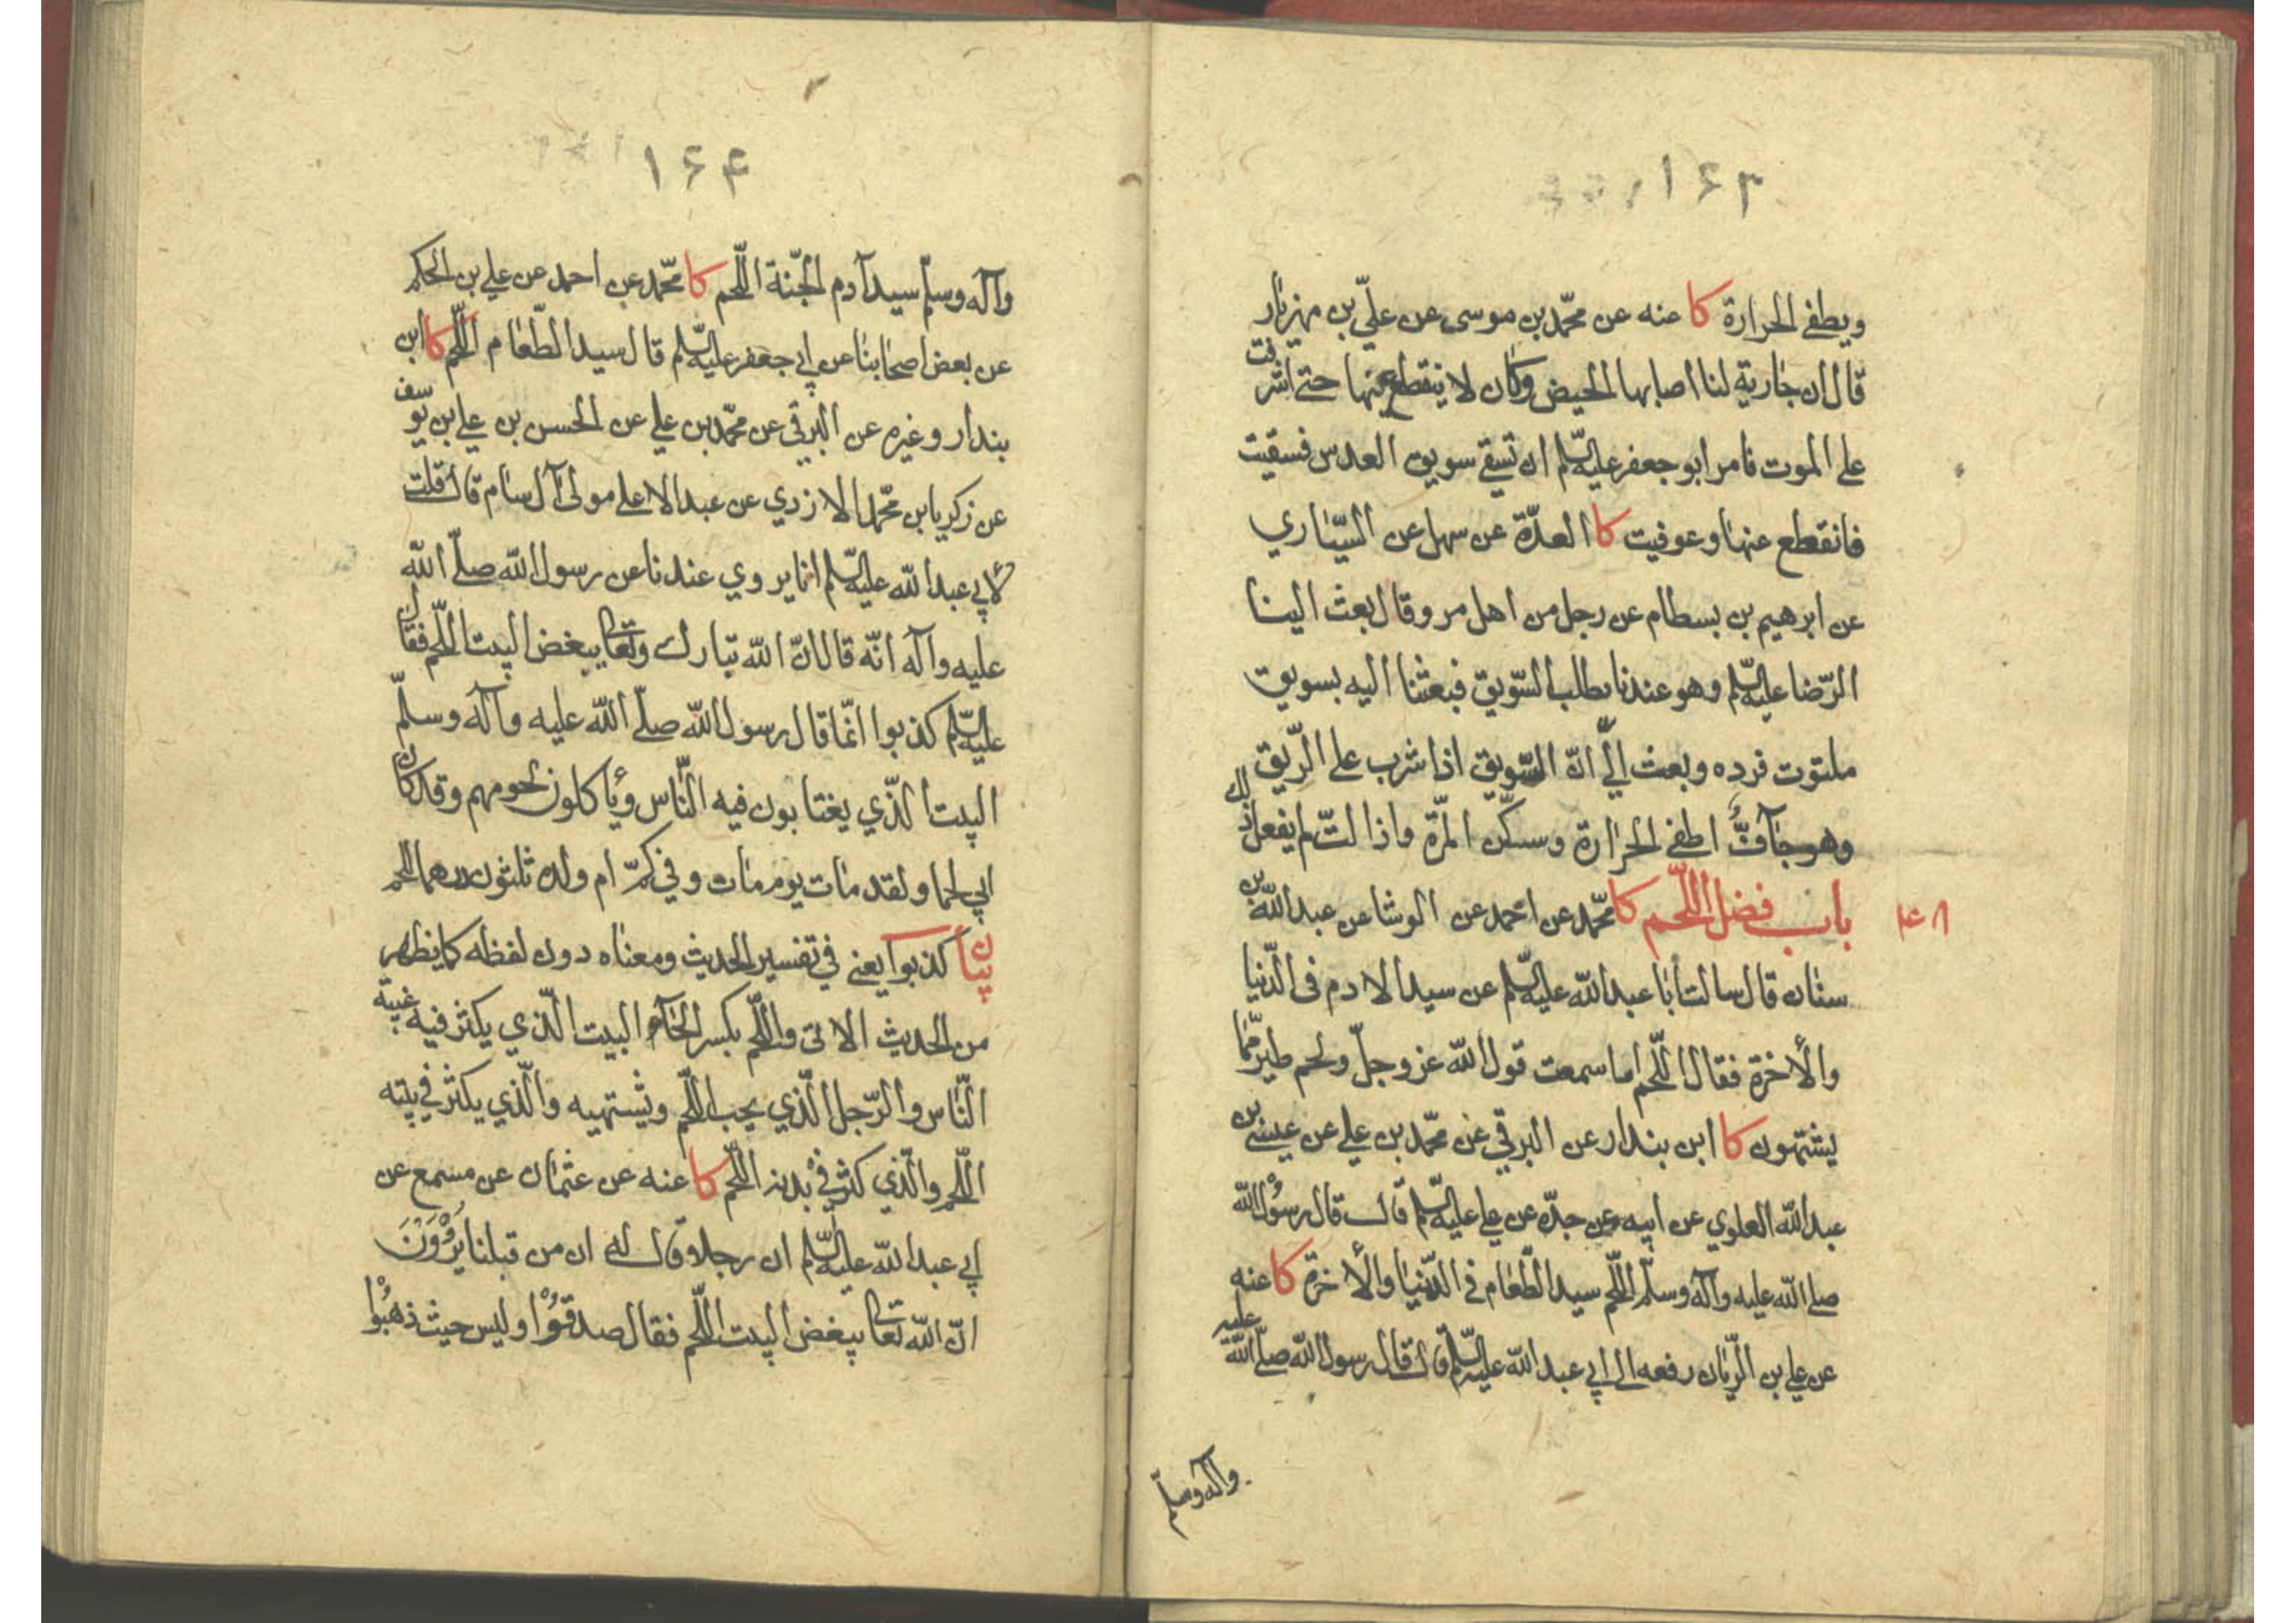 ۱۶۳
ويطفي الحرارة كا عنه عن محمّد بن موسى عن عليّ بن مهزيار
قال ان جارية لنا اصابها الحيض وكان لا ينقطع عنها حتى اشرفت
على الموت فامر ابو جعفر عليه السّلم ان تسقى سويق العدس فسقيت
فانقطع عنها وعوفيت كا العدّة عن سهل عن السيّاري
عن ابرهيم بن بسطام عن رجل من اهل مرو قال بعث الينا
الرّضا عليه السّلم وهو عندنا يطلب السّويق فبعثنا اليه بسويق
ملتوت فرده وبعث اليّ انّ السّويق اذا شرب على الرّيق
وهو جافّ اطفى الحرارة وسكّن المرّة واذا لتّ لم يفعل ذلك
باب فضل اللّحم كا محمّد عن احمد عن الوشا عن عبد اللّه بن
۴۸
سنان قال سالت ابا عبد اللّه عليه السّلم عن سيد الادم في الدّنيا
والأخرة فقال اللّحم اما سمعت قول اللّه عز وجلّ ولحم طير ممّا
يشتهون كا ابن بندار عن البرقي عن محمّد بن علي عن عيسى بن
عبد اللّه العلوي عن ابيه عن جدّه عن علي عليه السّلم قال قال رسول اللّه
صلى اللّه عليه وآله وسلّم اللّحم سيد الطّعام في الدّنيا والأخرة كا عنه
عن علي بن الرّيان رفعه الى ابي عبد اللّه عليه السّلم قال قال رسول اللّه صلّى اللّه عليه
وآله وسلّم
۱۶۴
وآله وسلّم سيد آدم الجنّة اللّحم كا محمّد عن احمد عن علي بن الحكم
عن بعض اصحابنا عن ابي جعفر عليه السّلم قال سيد الطّعام اللّحم كا ابن
بندار وغيره عن البرقي عن محمّد بن علي عن الحسن بن علي بن يوسف
عن زكريا بن محمّد الازدي عن عبد الاعلى مولى آل سام قال قلت
لأبي عبد اللّه عليه السّلم انا يروي عندنا عن رسول اللّه صلّى اللّه
عليه وآله انّه قال انّ اللّه تبارك وتعالى يبغض البيت اللّحم فقال
عليه السّلم كذبوا انّما قال رسول اللّه صلّى اللّه عليه وآله وسلّم
البيت الّذي يغتابون فيه النّاس ويأكلون لحومهم وقد كان
ابي لحما ولقد مات يوم مات وفي كمّ ام ولده ثلثون درهما للحم
بيان كذبوا يعني في تفسير الحديث ومعناه دون لفظه كما يظهر
من الحديث الاتى واللّحم بكسر الحاء البيت الّذي يكثر فيه غيبة
النّاس والرّجل الّذي يحب اللّحم ويشتهيه والّذي يكثر في بيته
اللّحم والّذي كثر في بدنه اللّحم كا عنه عن عثمان عن مسمع عن
ابي عبد اللّه عليه السّلم ان رجلا قال له ان من قبلنا يَرْوُوَنَ
انّ اللّه تعالى يبغض البيت اللّحم فقال صدقوْا وليس حيث ذهبُوْا